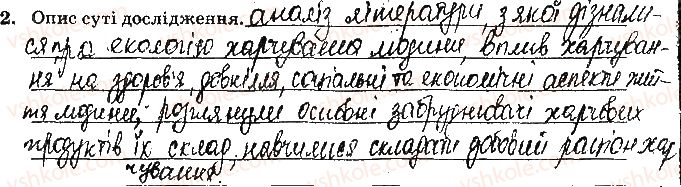 2. Опис суті дослідження. аналіз літератури, з якої дізнали-
ся про екологію харчування людини, вплив харчуван-
ня на здоров'я, довкілля, соціальні та економічні аспекти жит-
тя людини, розглянули основні забруднювачі харчових
продуктів їх склад, навчилися складати добовий раціон хар
чування.